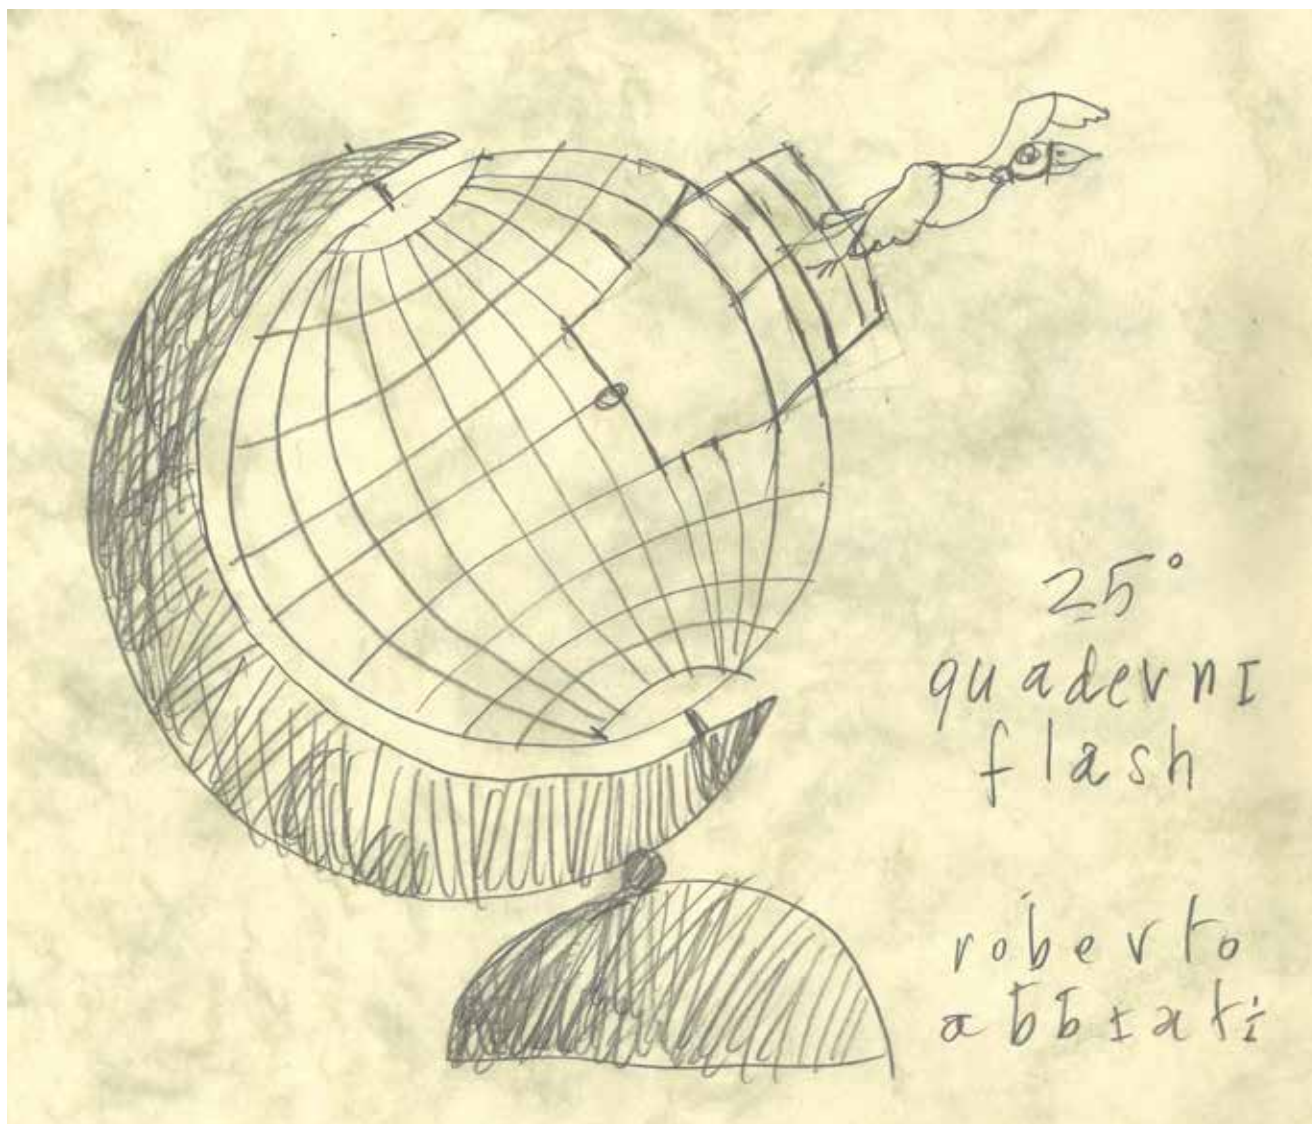 25°
quaderni
flash
roberto
abbiati